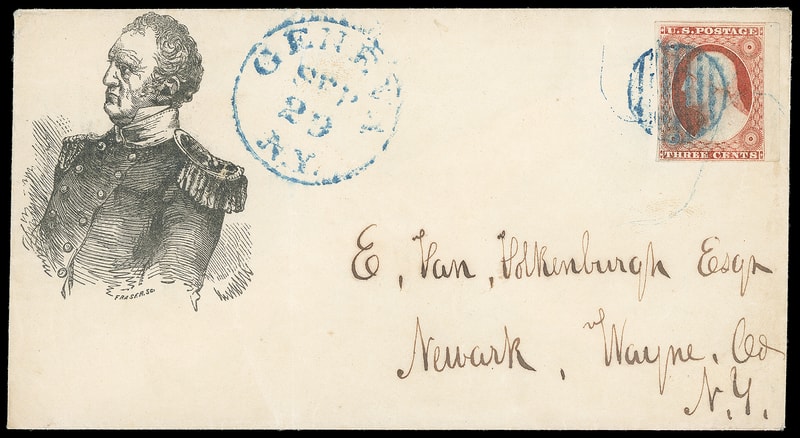 U.S. POSTAGE
THREE CENTS
GENEVA
SEP
23
N.Y.
FRASER. SC
E, Van, Volkenburgh Esqr
Newark, Wayne, Co
N.Y.